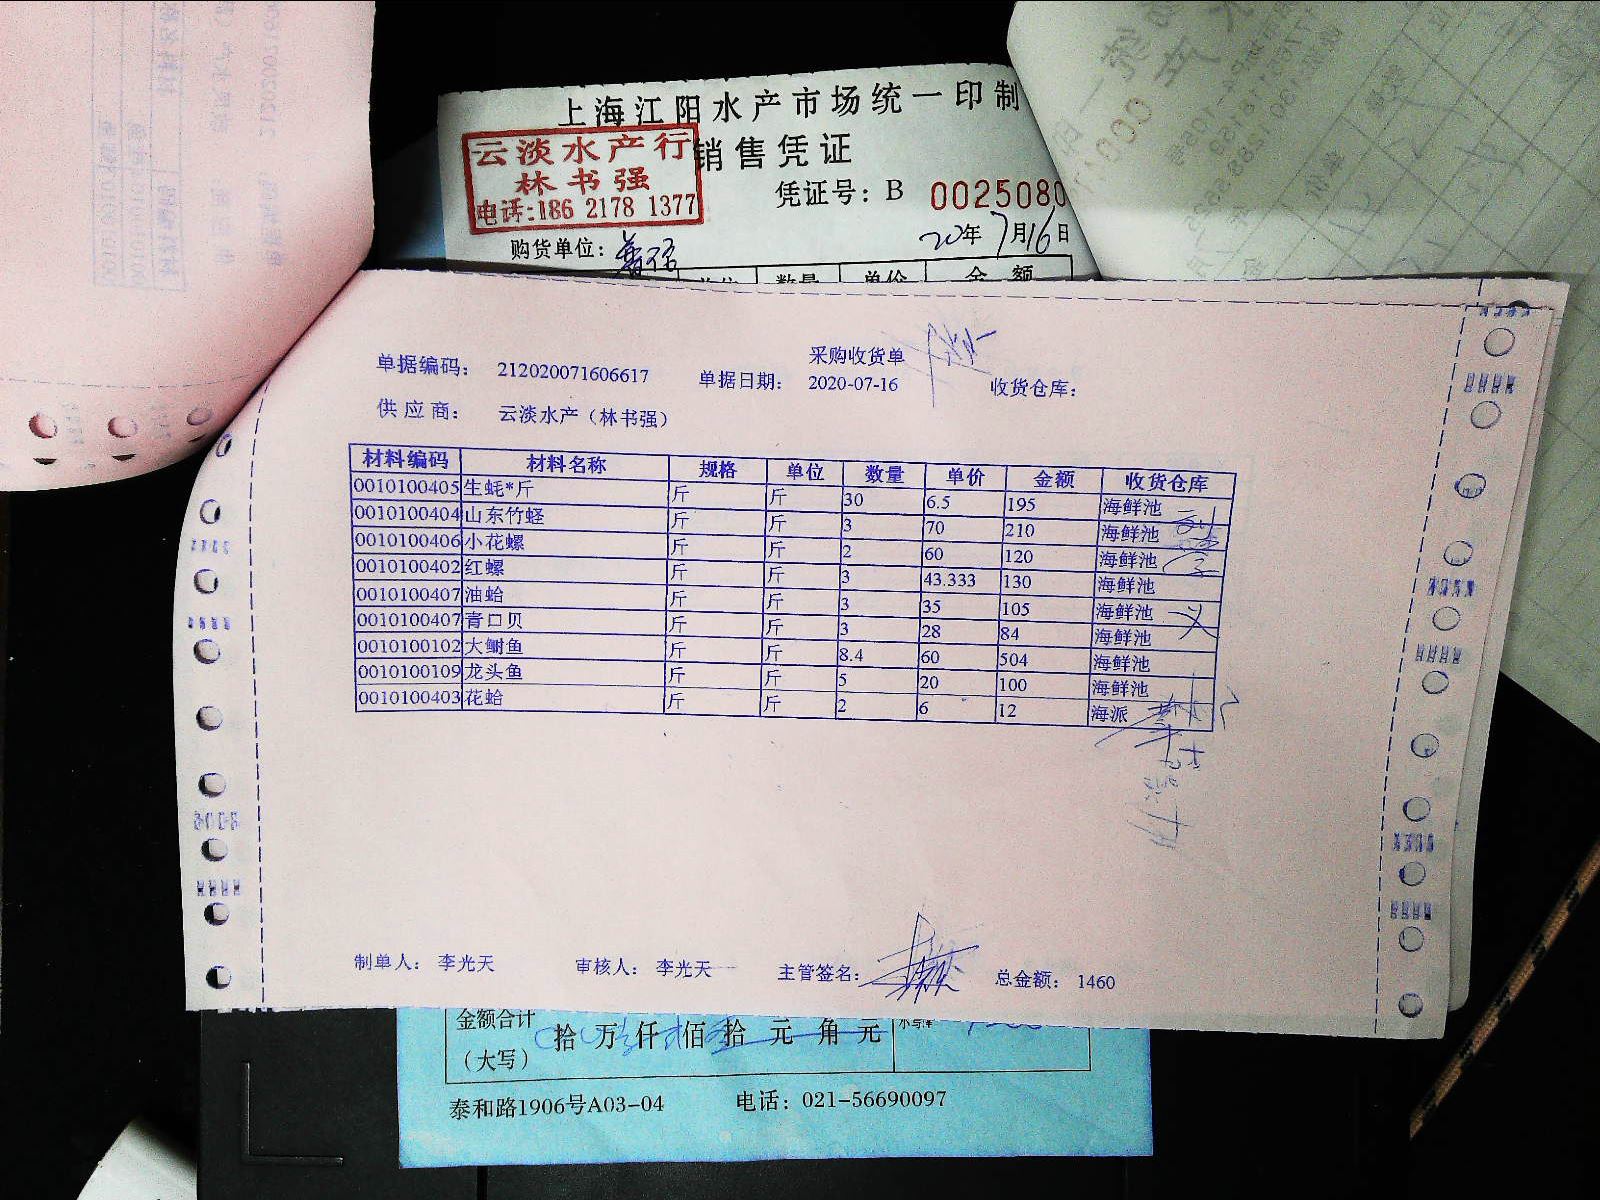 上海江阳水产市场统一印制
云淡水产行
销售凭证
林书强
凭证号：B 0025080
电话:186 2178 1377
购货单位：
20年7月16日
数量 单价 金额
采购收货单
单据编码： 212020071606617 单据日期： 2020-07-16 收货仓库：
供应商： 云淡水产（林书强）
材料编码 材料名称 规格 单位 数量 单价 金额 收货仓库
0010100405 生蚝*斤 斤 斤 30 6.5 195 海鲜池
0010100404 山东竹蛏 斤 斤 3 70 210 海鲜池
0010100406 小花螺 斤 斤 2 60 120 海鲜池
0010100402 红螺 斤 斤 3 43.333 130 海鲜池
0010100407 油蛤 斤 斤 3 35 105 海鲜池
0010100407 青口贝 斤 斤 3 28 84 海鲜池
0010100102 大鲥鱼 斤 斤 8.4 60 504 海鲜池
0010100109 龙头鱼 斤 斤 5 20 100 海鲜池
0010100403 花蛤 斤 斤 2 6 12 海派
制单人： 李光天 审核人： 李光天 主管签名： 总金额： 1460
金额合计 拾 万 仟 佰 拾 元 角 元
（大写）
泰和路1906号A03-04 电话：021-56690097